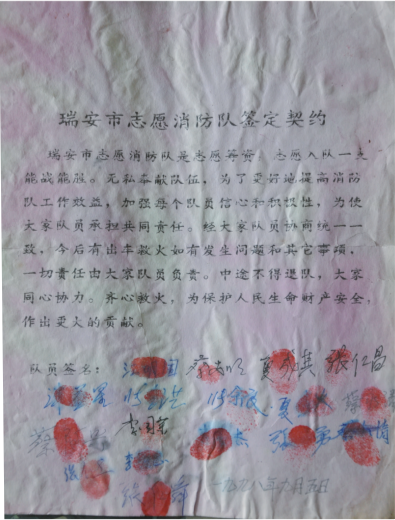 瑞安市志愿消防队签定契约
瑞安市志愿消防队是志愿筹资,志愿入队一支
能战能胜。无私奉献队伍,为了更好地提高消防
队工作效益,加强每个队员信心和积极性,为使
大家队员承担共同责任。经大家队员协商统一一
致,今后有出车救火如有发生问题和其它事项,
一切责任由大家队员负责。中途不得退队,大家
同心协力。齐心救火,为保护人民生命财产安全,
作出更大的贡献。
队员签名:
张仁昌
一九九八年六月五日